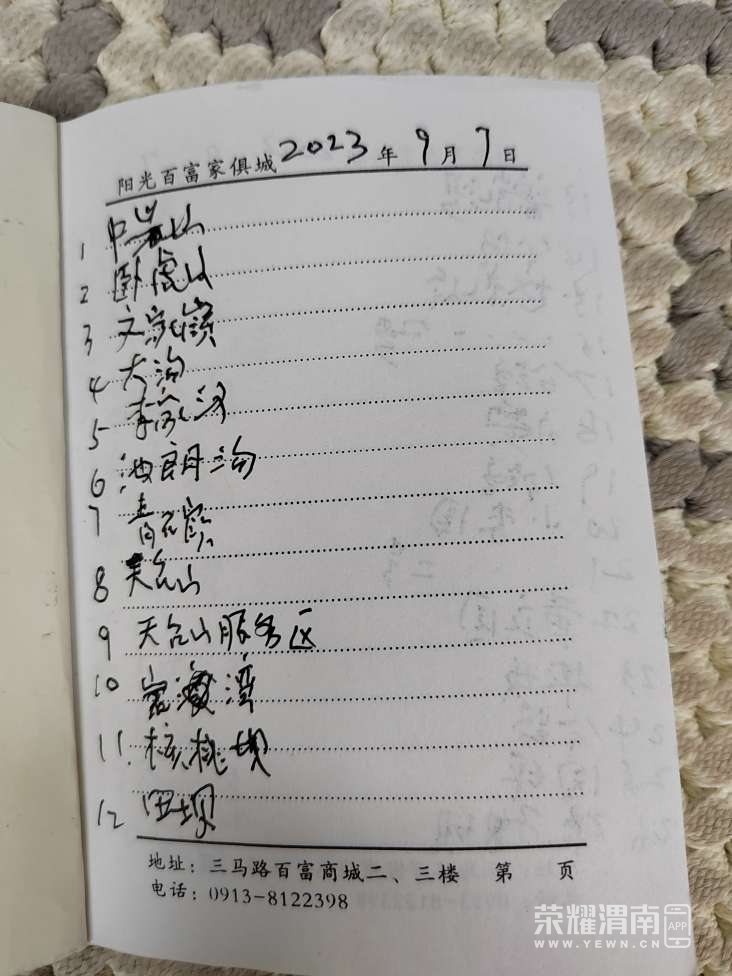 阳光百富家俱城 2023 年 9 月 7 日
1 中岩山
2 卧虎山
3 文家岭
4 大沟
5 李家河
6 池朗沟
7 青石岭
8 天台山
9 天台山服务区
10 湾
11. 核桃坝
12 四坝
地址：三马路百富商城二、三楼 第 页
电话：0913-8122398
荣耀渭南APP
WWW.YEWN.CN